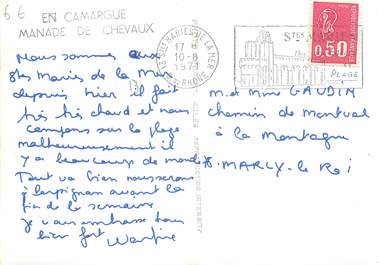 6 €
EN CAMARGUE
MANADE DE CHEVAUX
13 STES MARIES DE LA MER
17 H
10-8
1974
B. DU RHONE
STES MARIES
PLAGE
0,50
Nous sommes aux
Stes Maries de la Mer
depuis hier il fait
très très chaud et nous
campons sur la plage
malheureusement il
y a beaucoup de monde
Tout va bien nous serons
à Perpignan avant la
fin de la semaine
je vous embrasse tous
bien fort
M. et Mme GAUDIN
chemin de Montval
à la Montagne
MARLY-le Roi